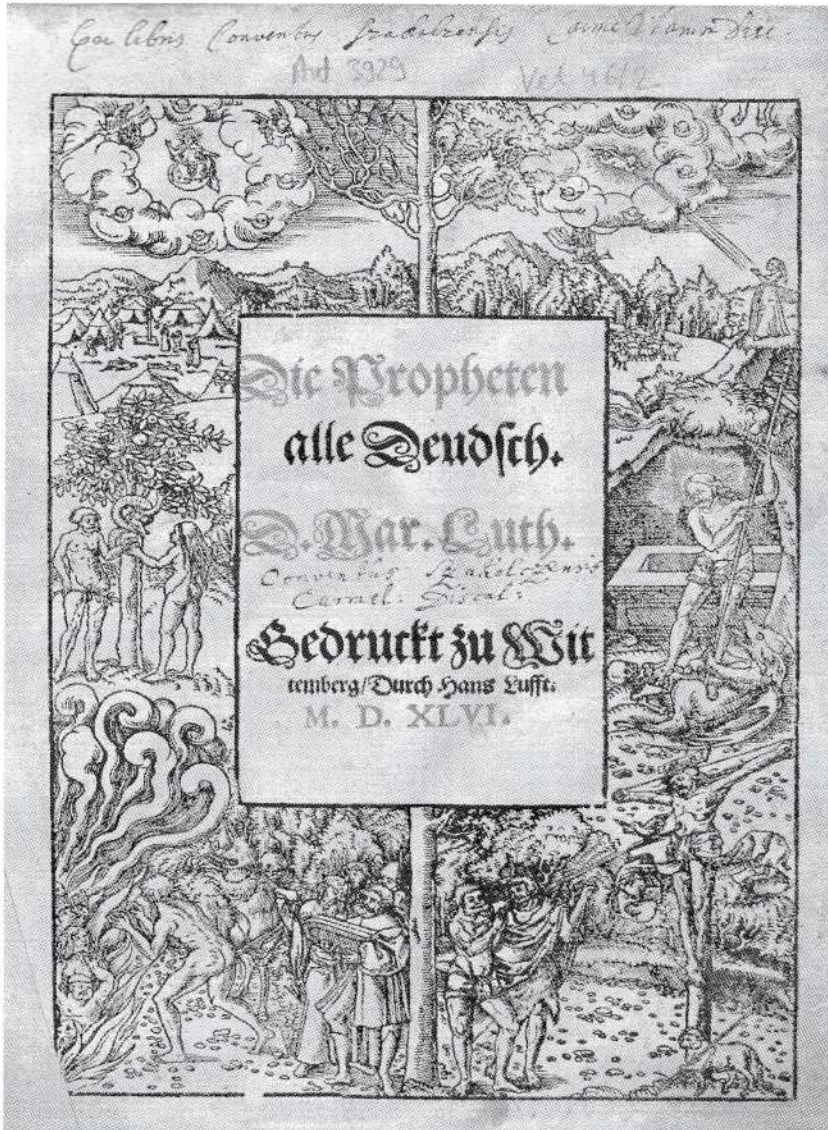 Ex libris Conventus Szakolzensis
Ad 3929 Vet 46/2
Die Propheten
alle Deudsch.
D. Mar. Luth.
Conventus Szakolzensis
Carmel: Discal:
Gedruckt zu Wit
temberg/Durch Hans Lufft.
M. D. XLVI.